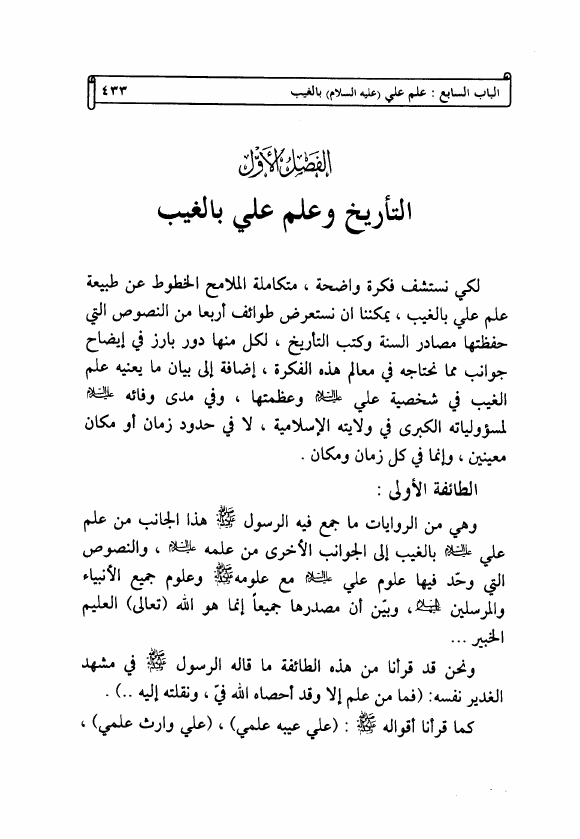 الباب السابع : علم علي (عليه السلام) بالغيب ٤٣٣
الفصل الأول
التأريخ وعلم علي بالغيب
لكي نستشف فكرة واضحة ، متكاملة الملامح الخطوط عن طبيعة
علم علي بالغيب ، يمكننا ان نستعرض طوائف أربعا من النصوص التي
حفظتها مصادر السنة وكتب التأريخ ، لكل منها دور بارز في إيضاح
جوانب مما نحتاجه في معالم هذه الفكرة ، إضافة إلى بيان ما يعنيه علم
الغيب في شخصية علي عليه السلام وعظمتها ، وفي مدى وفائه عليه السلام
لمسؤولياته الكبرى في ولايته الإسلامية ، لا في حدود زمان أو مكان
معينين ، وإنما في كل زمان ومكان .
الطائفة الأولى :
وهي من الروايات ما جمع فيه الرسول ﷺ هذا الجانب من علم
علي عليه السلام بالغيب إلى الجوانب الأخرى من علمه عليه السلام ، والنصوص
التي وحّد فيها علوم علي عليه السلام مع علومه ﷺ وعلوم جميع الأنبياء
والمرسلين عليهم السلام ، وبيّن أن مصدرها جميعاً إنما هو الله (تعالى) العليم
الخبير ...
ونحن قد قرأنا من هذه الطائفة ما قاله الرسول ﷺ في مشهد
الغدير نفسه: (فما من علم إلا وقد أحصاه الله فيّ ، ونقلته إليه ..) .
كما قرأنا أقواله ﷺ : (علي عيبه علمي) ، (علي وارث علمي) ،